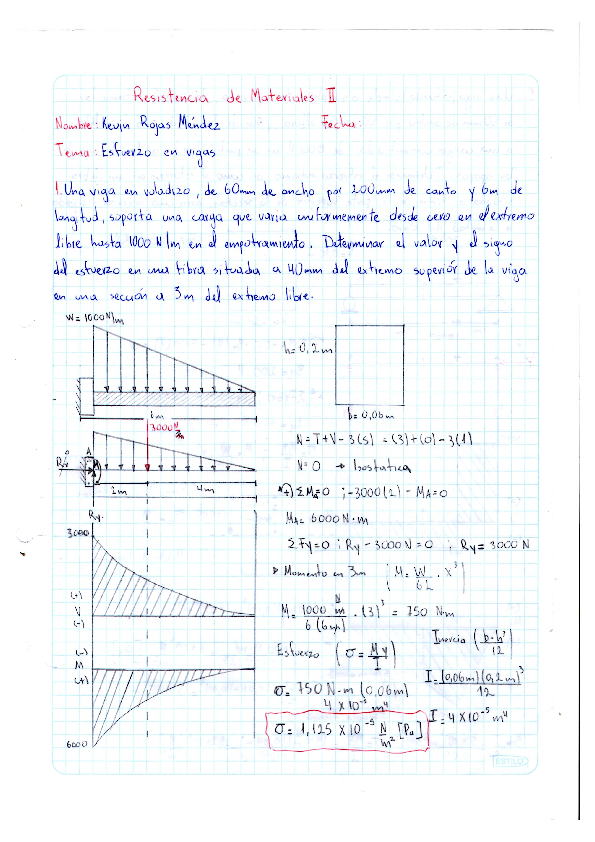 Resistencia de Materiales II
Nombre: Kevin Rojas Méndez Fecha:
Tema: Esfuerzo en vigas
1. Una viga en voladizo, de 60mm de ancho por 200mm de canto y 6m de
longitud, soporta una carga que varia uniformemente desde cero en el extremo
libre hasta 1000 N/m en el empotramiento. Determinar el valor y el signo
del esfuerzo en una fibra situada a 40mm del extremo superior de la viga
en una sección a 3m del extremo libre.
W = 1000 N/m
h = 0,2 m
b = 0,06 m
6m
3000 N
A
2m 4m
N = T + V - 3(S) = (3) + (0) - 3(1)
N = 0 → Isostatica
+) ΣMA = 0 ; -3000(2) - MA = 0
MA = 6000 N·m
ΣFy = 0 ; Ry - 3000 N = 0 ; Ry = 3000 N
Ry
3000
(+)
V
(-)
Momento en 3m ( M = W/6L · x³
M = 1000 N/m / 6(6m) · (3)³ = 750 N·m
Esfuerzo ( σ = My/I )
Inercia ( b·h³/12 )
I = (0,06m)(0,2m)³/12
(-)
M
(+)
6000
σ = 750 N-m (0,06m) / 4 x 10⁻⁵ m⁴
I = 4 x 10⁻⁵ m⁴
σ = 1,125 x 10⁻⁵ N/m² [Pa]
ESTILO